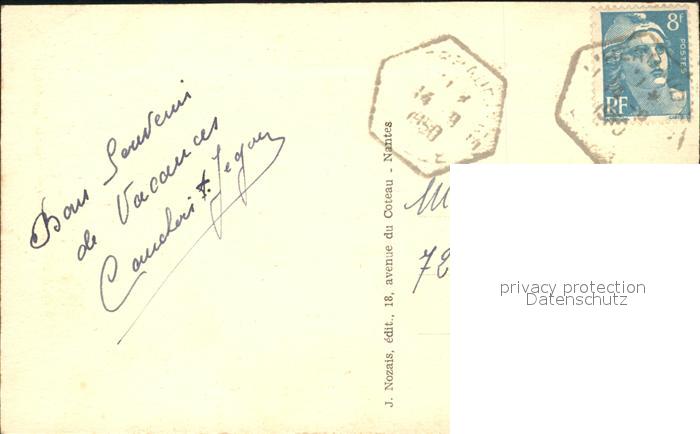 Bons Souvenirs
de Vacances
J. Nozais, édit., 18, avenue du Coteau - Nantes
14
1950
8F
POSTES
RF
M
72
privacy protection
Datenschutz